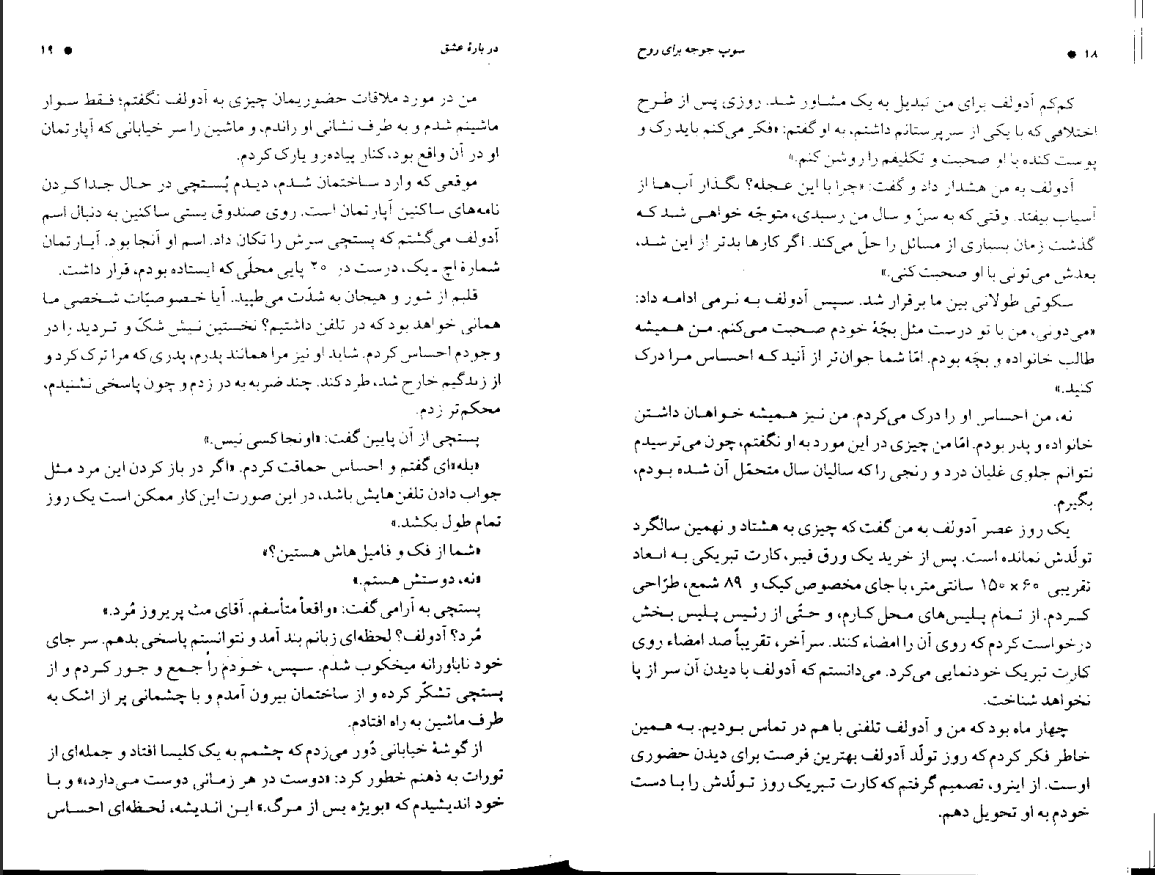 ۱۸ ● سوپ جوجه برای روح
کم‌کم آدولف برای من تبدیل به یک مشاور شد. روزی پس از طرح
اختلافی که با یکی از سرپرستانم داشتم، به او گفتم: «فکر می‌کنم باید رک و
پوست کنده با او صحبت و تکلیفم را روشن کنم.»
آدولف به من هشدار داد و گفت: «چرا با این عجله؟ بگذار آب‌ها از
آسیاب بیفتد. وقتی که به سنّ و سال من رسیدی، متوجّه خواهی شد که
گذشت زمان بسیاری از مسائل را حلّ می‌کند. اگر کارها بدتر از این شد،
بعدش می‌تونی با او صحبت کنی.»
سکوتی طولانی بین ما برقرار شد. سپس آدولف به نرمی ادامه داد:
«می‌دونی، من با تو درست مثل بچّهٔ خودم صحبت می‌کنم. من همیشه
طالب خانواده و بچّه بودم. امّا شما جوان‌تر از آنید که احساس مرا درک
کنید.»
نه، من احساس او را درک می‌کردم. من نیز همیشه خواهان داشتن
خانواده و پدر بودم. امّا من چیزی در این مورد به او نگفتم، چون می‌ترسیدم
نتوانم جلوی غلیان درد و رنجی را که سالیان سال متحمّل آن شده بودم،
بگیرم.
یک روز عصر آدولف به من گفت که چیزی به هشتاد و نهمین سالگرد
تولّدش نمانده است. پس از خرید یک ورق فیبر، کارت تبریکی به ابعاد
تقریبی ۶۰ × ۱۵۰ سانتی‌متر، با جای مخصوص کیک و ۸۹ شمع، طرّاحی
کردم. از تمام پلیس‌های محل کارم، و حتّی از رئیس پلیس بخش
درخواست کردم که روی آن را امضاء کنند. سرآخر، تقریباً صد امضاء روی
کارت تبریک خودنمایی می‌کرد. می‌دانستم که آدولف با دیدن آن سر از پا
نخواهد شناخت.
چهار ماه بود که من و آدولف تلفنی با هم در تماس بودیم. به همین
خاطر فکر کردم که روز تولّد آدولف بهترین فرصت برای دیدن حضوری
اوست. از اینرو، تصمیم گرفتم که کارت تبریک روز تولّدش را با دست
خودم به او تحویل دهم.
دربارهٔ عشق ● ۱۹
من در مورد ملاقات حضوریمان چیزی به آدولف نگفتم؛ فقط سوار
ماشینم شدم و به طرف نشانی او راندم، و ماشین را سر خیابانی که آپارتمان
او در آن واقع بود، کنار پیاده‌رو پارک کردم.
موقعی که وارد ساختمان شدم، دیدم پُستچی در حال جدا کردن
نامه‌های ساکنین آپارتمان است. روی صندوق پستی ساکنین به دنبال اسم
آدولف می‌گشتم که پستچی سرش را تکان داد. اسم او آنجا بود. آپارتمان
شمارهٔ اچ ـ یک، درست در ۲۰ پایی محلّی که ایستاده بودم، قرار داشت.
قلبم از شور و هیجان به شدّت می‌طپید. آیا خصوصیّات شخصی ما
همانی خواهد بود که در تلفن داشتیم؟ نخستین نیش شکّ و تردید را در
وجودم احساس کردم. شاید او نیز مرا همانند پدرم، پدری که مرا ترک کرد و
از زندگیم خارج شد، طرد کند. چند ضربه به در زدم و چون پاسخی نشنیدم،
محکم‌تر زدم.
پستچی از آن پایین گفت: «اونجا کسی نیس.»
«بله»ای گفتم و احساس حماقت کردم. «اگر در باز کردن این مرد مثل
جواب دادن تلفن‌هایش باشد، در این صورت این کار ممکن است یک روز
تمام طول بکشد.»
«شما از فک و فامیل‌هاش هستین؟»
«نه، دوستش هستم.»
پستچی به آرامی گفت: «واقعاً متأسفم. آقای مث پریروز مُرد.»
مُرد؟ آدولف؟ لحظه‌ای زبانم بند آمد و نتوانستم پاسخی بدهم. سر جای
خود ناباورانه میخکوب شدم. سپس، خودم را جمع و جور کردم و از
پستچی تشکّر کرده و از ساختمان بیرون آمدم و با چشمانی پر از اشک به
طرف ماشین به راه افتادم.
از گوشهٔ خیابانی دُور می‌زدم که چشمم به یک کلیسا افتاد و جمله‌ای از
تورات به ذهنم خطور کرد: «دوست در هر زمانی دوست می‌دارد،» و با
خود اندیشیدم که «بویژه پس از مرگ.» این اندیشه، لحظه‌ای احساس